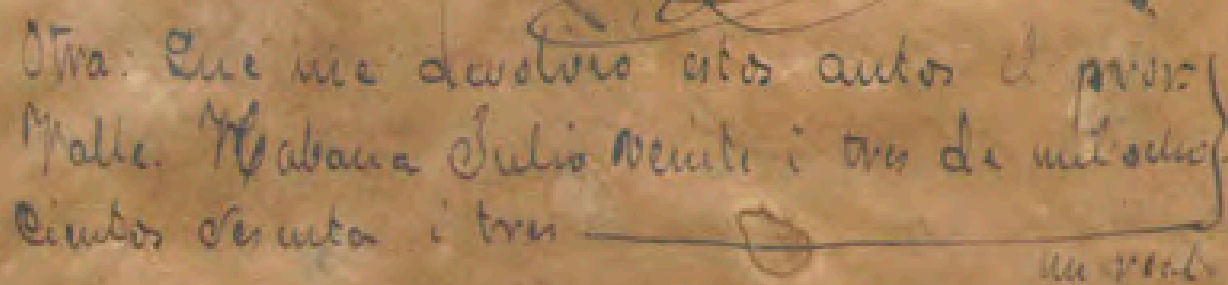 Otra: Que me devolvió estos autos el procr.
Valle. Habana Julio veinte i tres de mil ocho
cientos sesenta i tres
un real